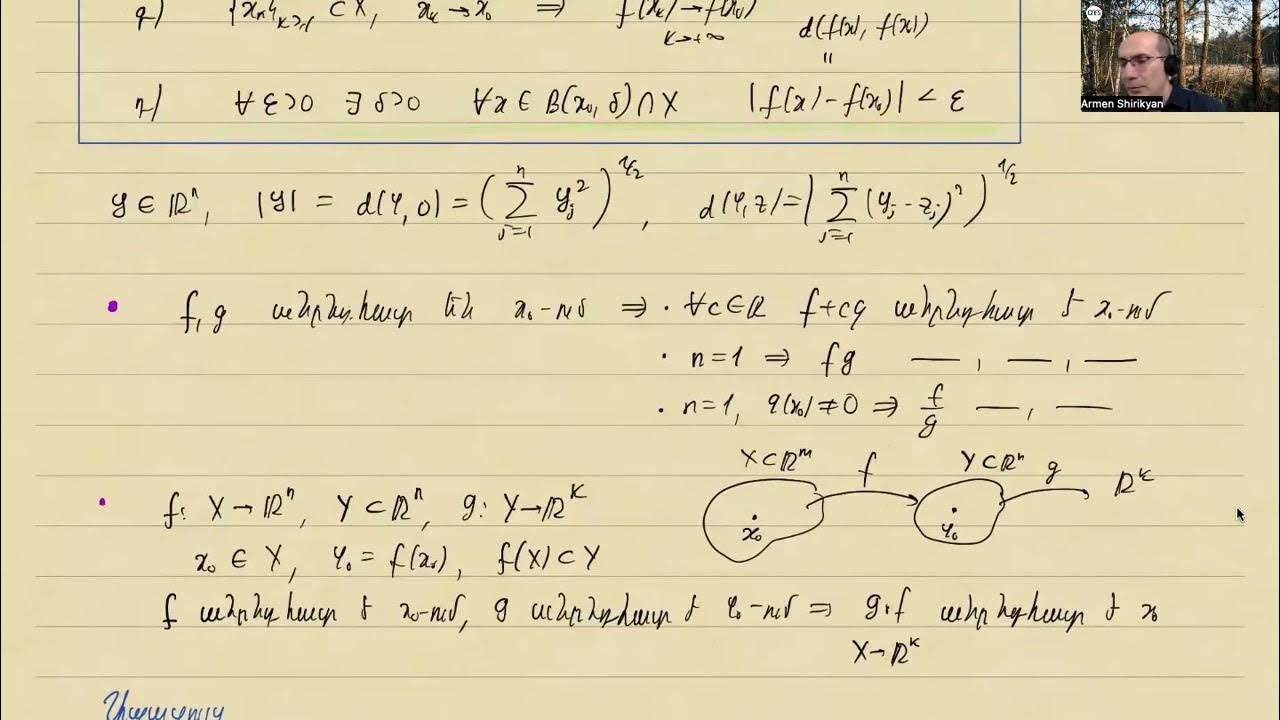 գ) {xₖ}ₖ≥₁ ⊂ X, xₖ → x₀ ⇒ f(xₖ) → f(x₀)
k→+∞
d(f(x), f(x₀))
"
cnrs
Armen Shirikyan
դ) ∀ε>0 ∃δ>0 ∀x ∈ B(x₀, δ) ∩ X |f(x) − f(x₀)| < ε
y ∈ ℝⁿ, |y| = d(y, 0) = (∑ⁿⱼ₌₁ yⱼ²)^{1/2}, d(y, z) = (∑ⁿⱼ₌₁ (yⱼ − zⱼ)²)^{1/2}
• f, g անընդհատ են x₀-ում ⇒ · ∀c∈ℝ f+cg անընդհատ է x₀-ում
· n=1 ⇒ fg —, —, —
· n=1, g(x₀)≠0 ⇒ f/g —, —
X⊂ℝᵐ f Y⊂ℝⁿ g ℝᵏ
x₀ y₀
• f: X→ℝⁿ, Y⊂ℝⁿ, g: Y→ℝᵏ
x₀ ∈ X, y₀ = f(x₀), f(X)⊂Y
f անընդհատ է x₀-ում, g անընդհատ է y₀-ում ⇒ g∘f անընդհատ է x₀
X→ℝᵏ